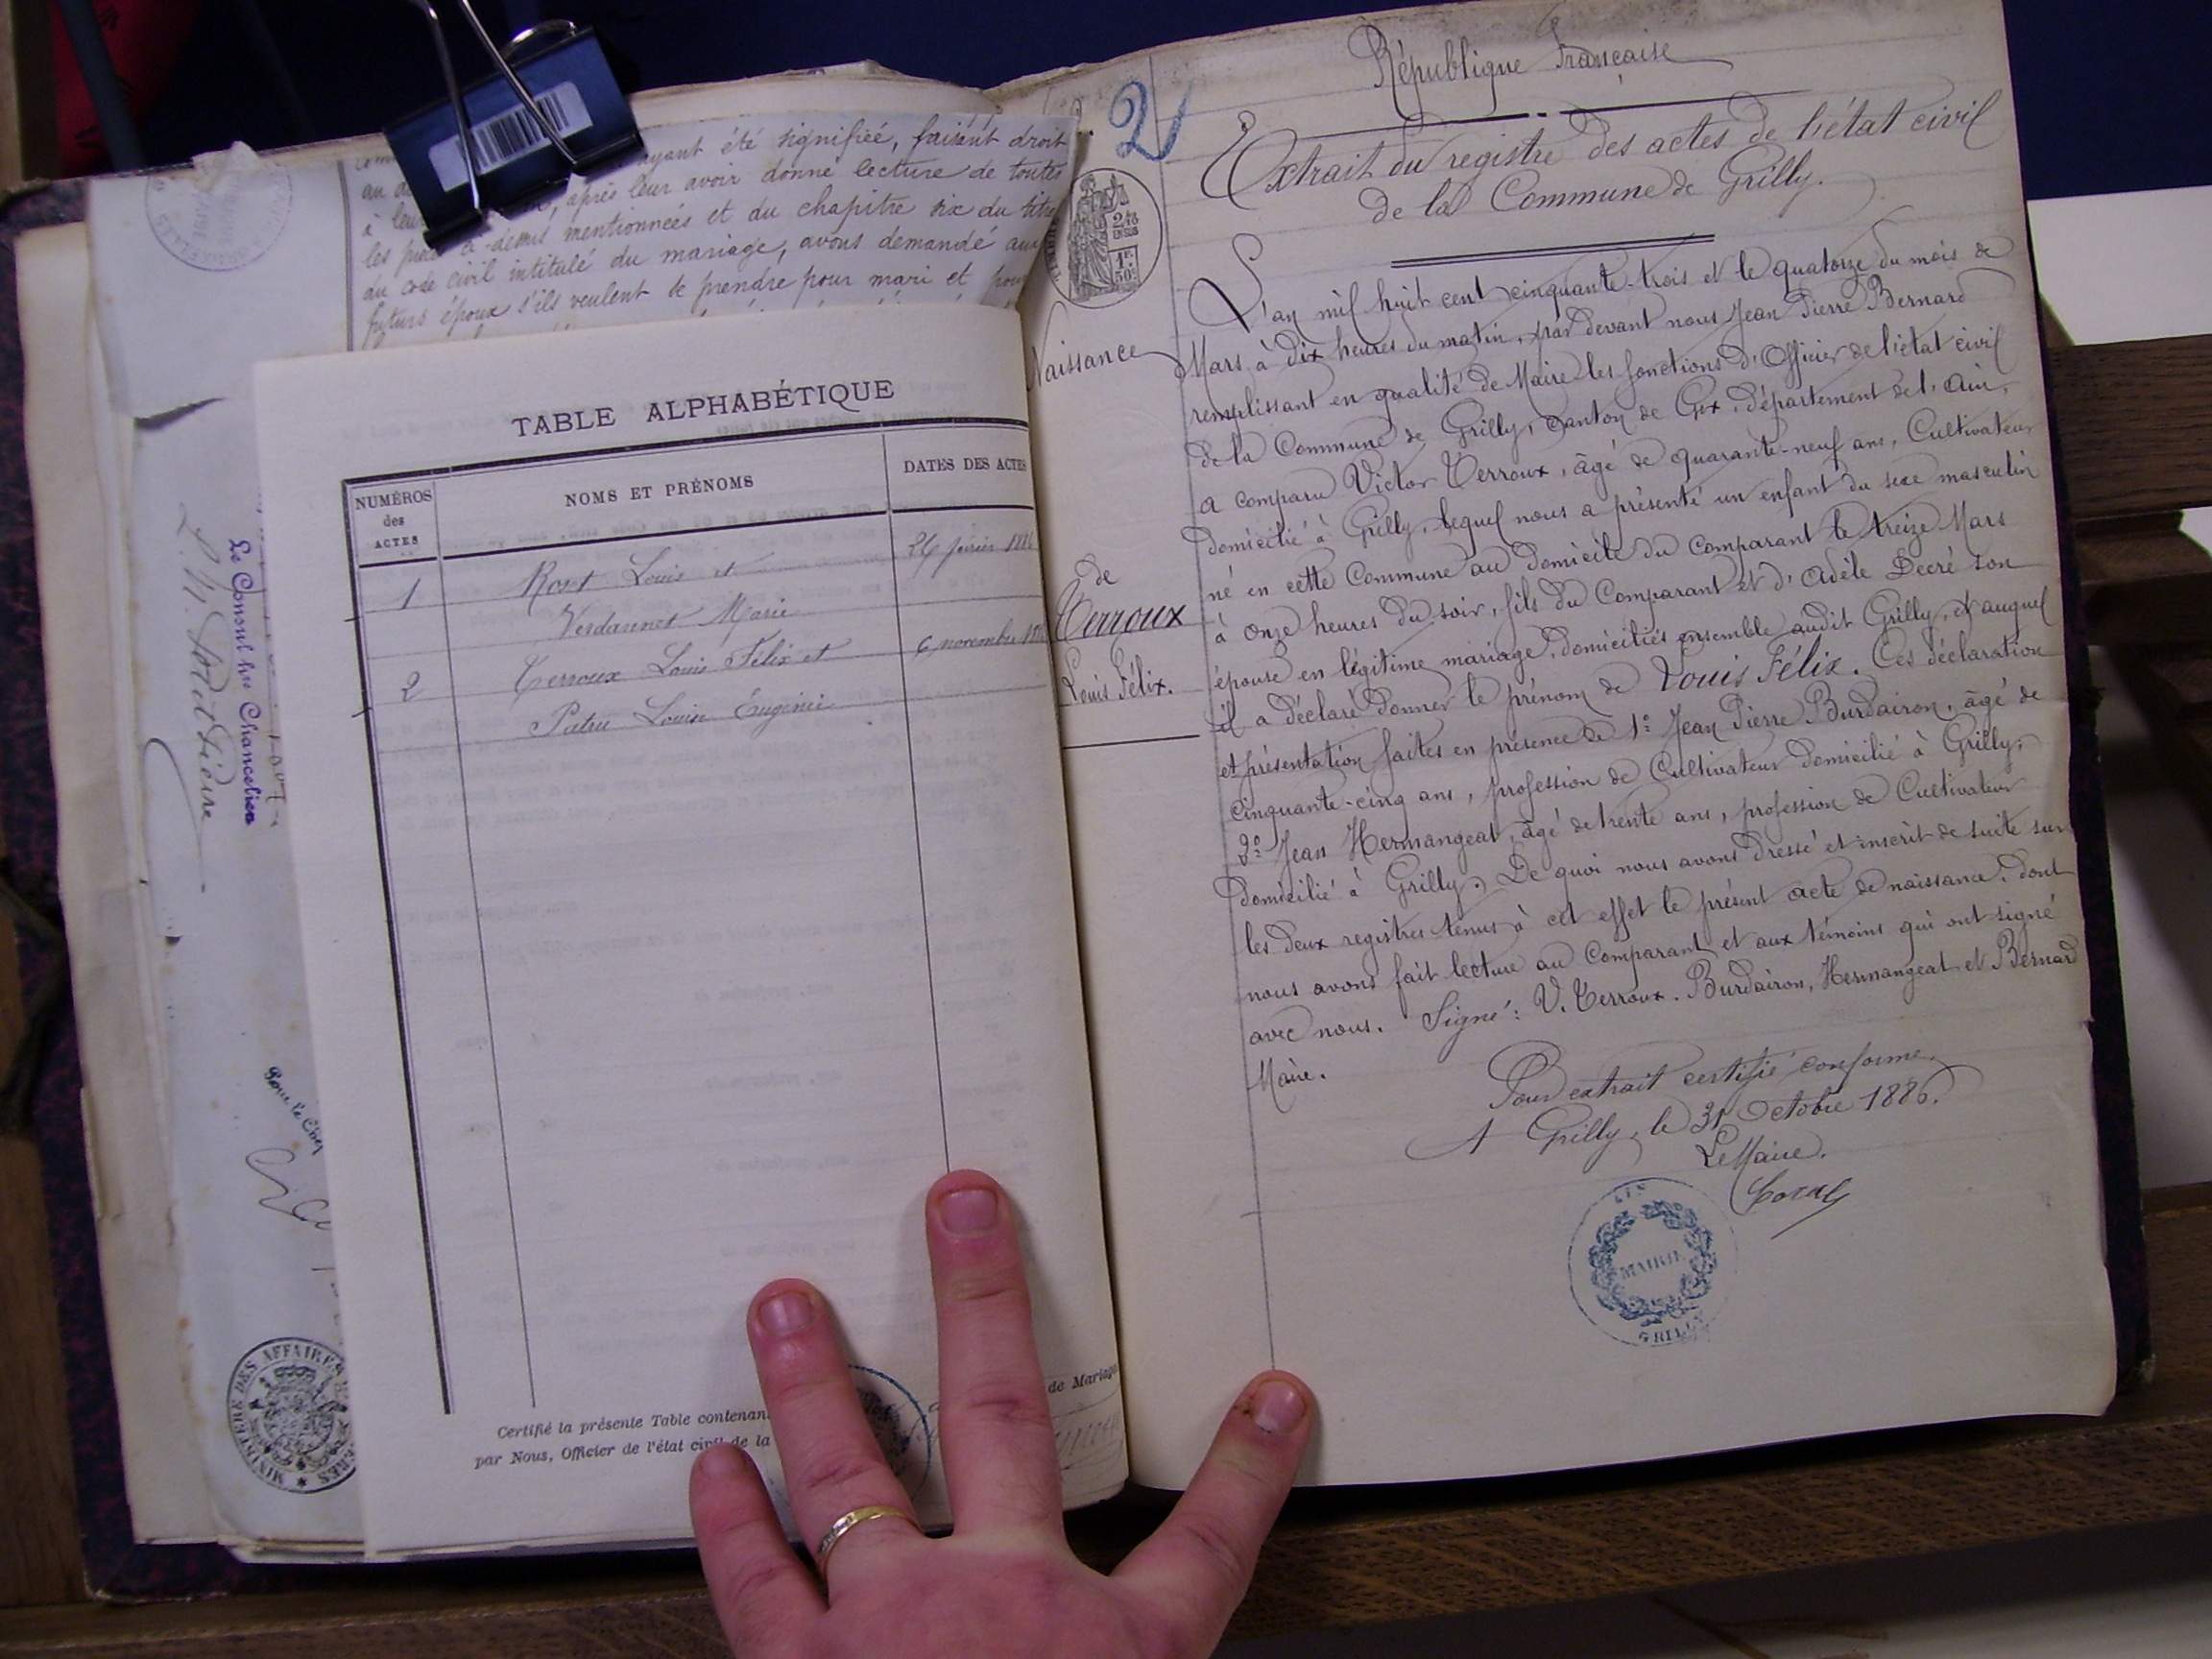 ayant été signifiée, faisant droit
après leur avoir donné lecture de toutes
les pièces ci-dessus mentionnées et du chapitre six du titre
du code civil intitulé du mariage, avons demandé aux
futurs époux s'ils veulent se prendre pour mari et pour
Le Consul lui Chancelier
MINISTERE DES AFFAIRES
TABLE ALPHABÉTIQUE
NUMÉROS des ACTES
NOMS ET PRÉNOMS
DATES DES ACTES
1 Rost Louis et
Verdannet Marie
2 Terroux Louis Félix et 6 novembre
Patru Louise Eugénie
Certifié la présente Table contenant
de Mariage
par Nous, Officier de l'état civil de la
2
République Française
Extrait du registre des actes de l'état civil
de la Commune de Grilly.
2/10 EN SUS
1F 50c
Naissance
de
Terroux
Louis Félix.
L'an mil huit cent cinquante-trois et le quatorze du mois de
Mars à dix heures du matin, par devant nous Jean Pierre Bernard
remplissant en qualité de Maire les fonctions d'Officier de l'état civil
de la Commune de Grilly, Canton de Gex, département de l'Ain,
a comparu Victor Terroux, âgé de quarante-neuf ans, Cultivateur
domicilié à Grilly, lequel nous a présenté un enfant du sexe masculin
né en cette Commune au domicile du Comparant le treize Mars
à onze heures du soir, fils du Comparant et d'Adèle Decré son
épouse en légitime mariage, domiciliés ensemble audit Grilly, et auquel
il a déclaré donner le prénom de Louis Félix. Ces déclaration
et présentation faites en présence de 1º Jean Pierre Burdairon, âgé de
cinquante-cinq ans, profession de Cultivateur domicilié à Grilly,
2º Jean Hermangeat, âgé de trente ans, profession de Cultivateur
domicilié à Grilly. De quoi nous avons dressé et inscrit de suite sur
les deux registres tenus à cet effet le présent acte de naissance, dont
nous avons fait lecture au Comparant et aux témoins qui ont signé
avec nous. Signé: V. Terroux. Burdairon, Hermangeat et Bernard
Maire.
Pour extrait certifié conforme.
A Grilly, le 31 Octobre 1886.
Le Maire.
MAIRIE